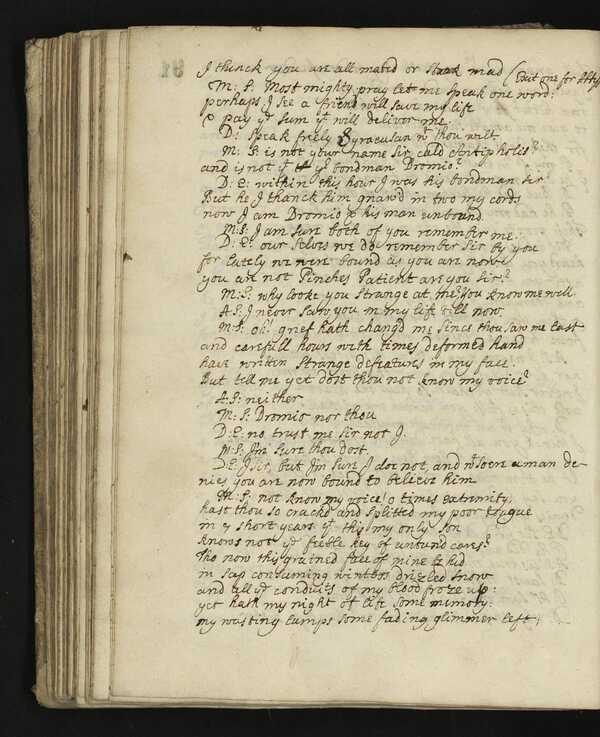 I thinck you are all mated or stark mad (Exit one for Abbess
M: S: Most mighty pray let me speak one word:
perhaps I see a friend will save my life
& pay yᵉ sum yᵗ will deliver me.
D: Speak freely Syracusan wᵗ thou wilt
M: S: is not your name Sir, cald Antipholis?
and is not yᵗ yʳ bondman Dromio?
D: E: within this hour I was his bondman sir
But he I thanck him gnaw'd in two my cords
now I am Dromio & his man unbound.
M: S: I am sure both of you remember me.
D: E: our selves we do remember Sir by you
for lately we were bound as you are now
you are not Pinches Patient are you Sir?
M: S: why looke you strange at me, you know me well.
A: S: I never saw you in my life till now
M: S: oh! grief hath changd me since thou saw me last
and carefull hours with times deformed hand
have written strange defeatures in my face.
But tell me yet dost thou not know my voice?
A: S: neither
M: S: Dromio nor thou
D: E: no trust me sir not I.
M: S: I'm sure thou dost.
D: E: I Sir, but I'm sure I doe not, and wˢoere a man de-
nies you are now bound to believe him
M: S: not know my voice! o times extremity,
hast thou so crackd and splitted my poor tongue
in 7 short years yᵗ this my only son
knows not yᵉ feeble key of untund cares?
Tho now this grained face of mine be hid
in sap consuming winters drizled snow
and all yᵉ conduits of my blood froze up:
yet hath my night of life some memory:
my wasting lamps some fading glimmer left;